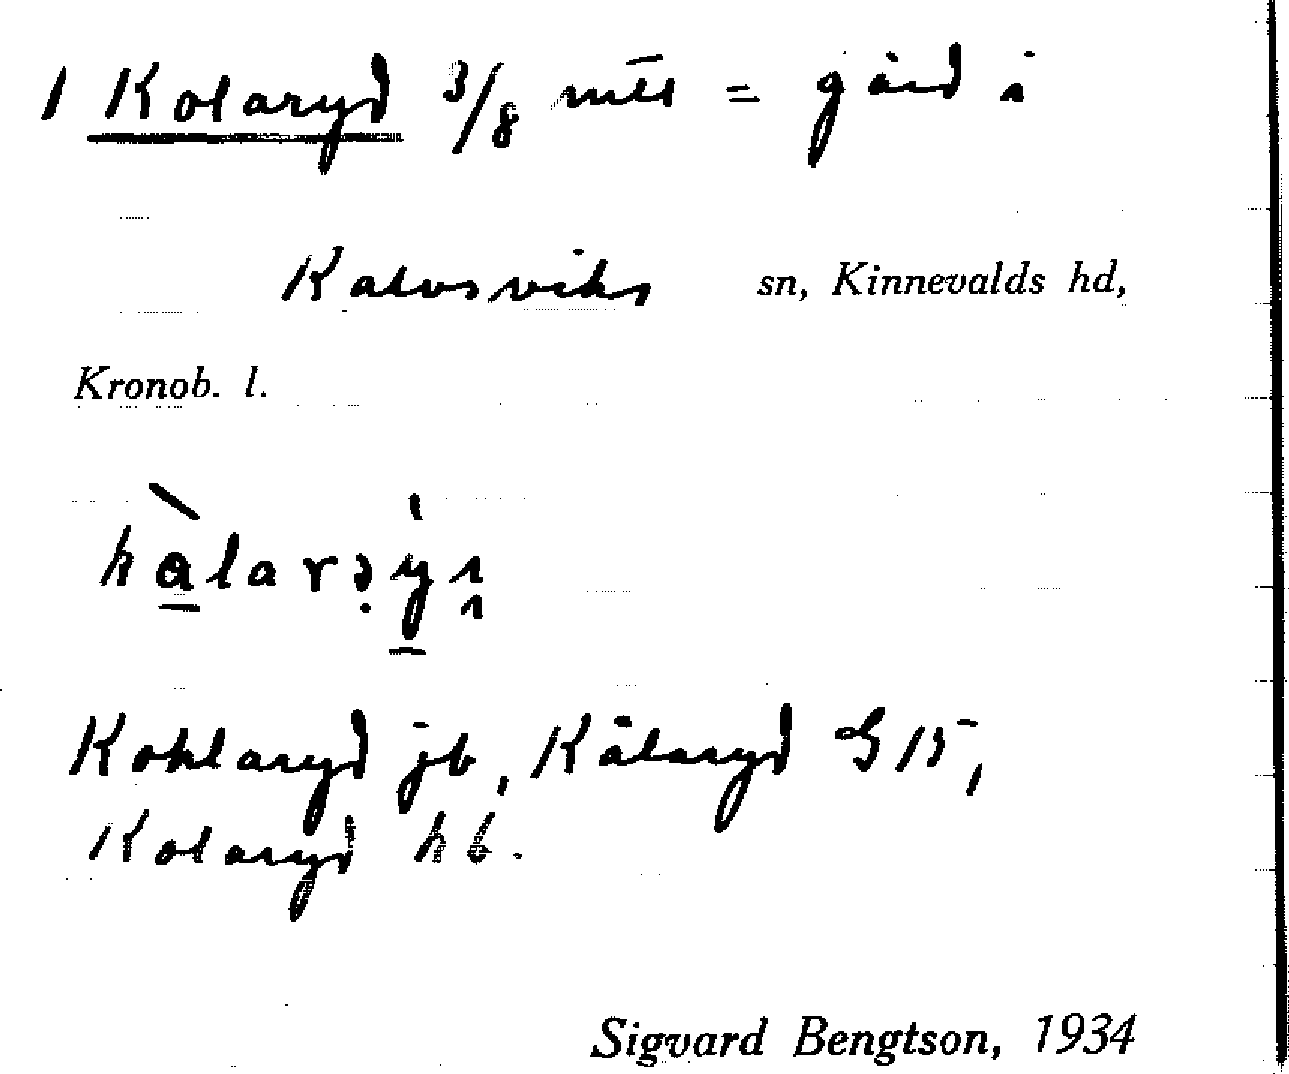 1 Kolaryd 3/8 mtl = gård i
Kalvsviks sn, Kinnevalds hd,
Kronob. l.
Kohlaryd jb, Kålaryd G 15,
Kolaryd hb.
Sigvard Bengtson, 1934